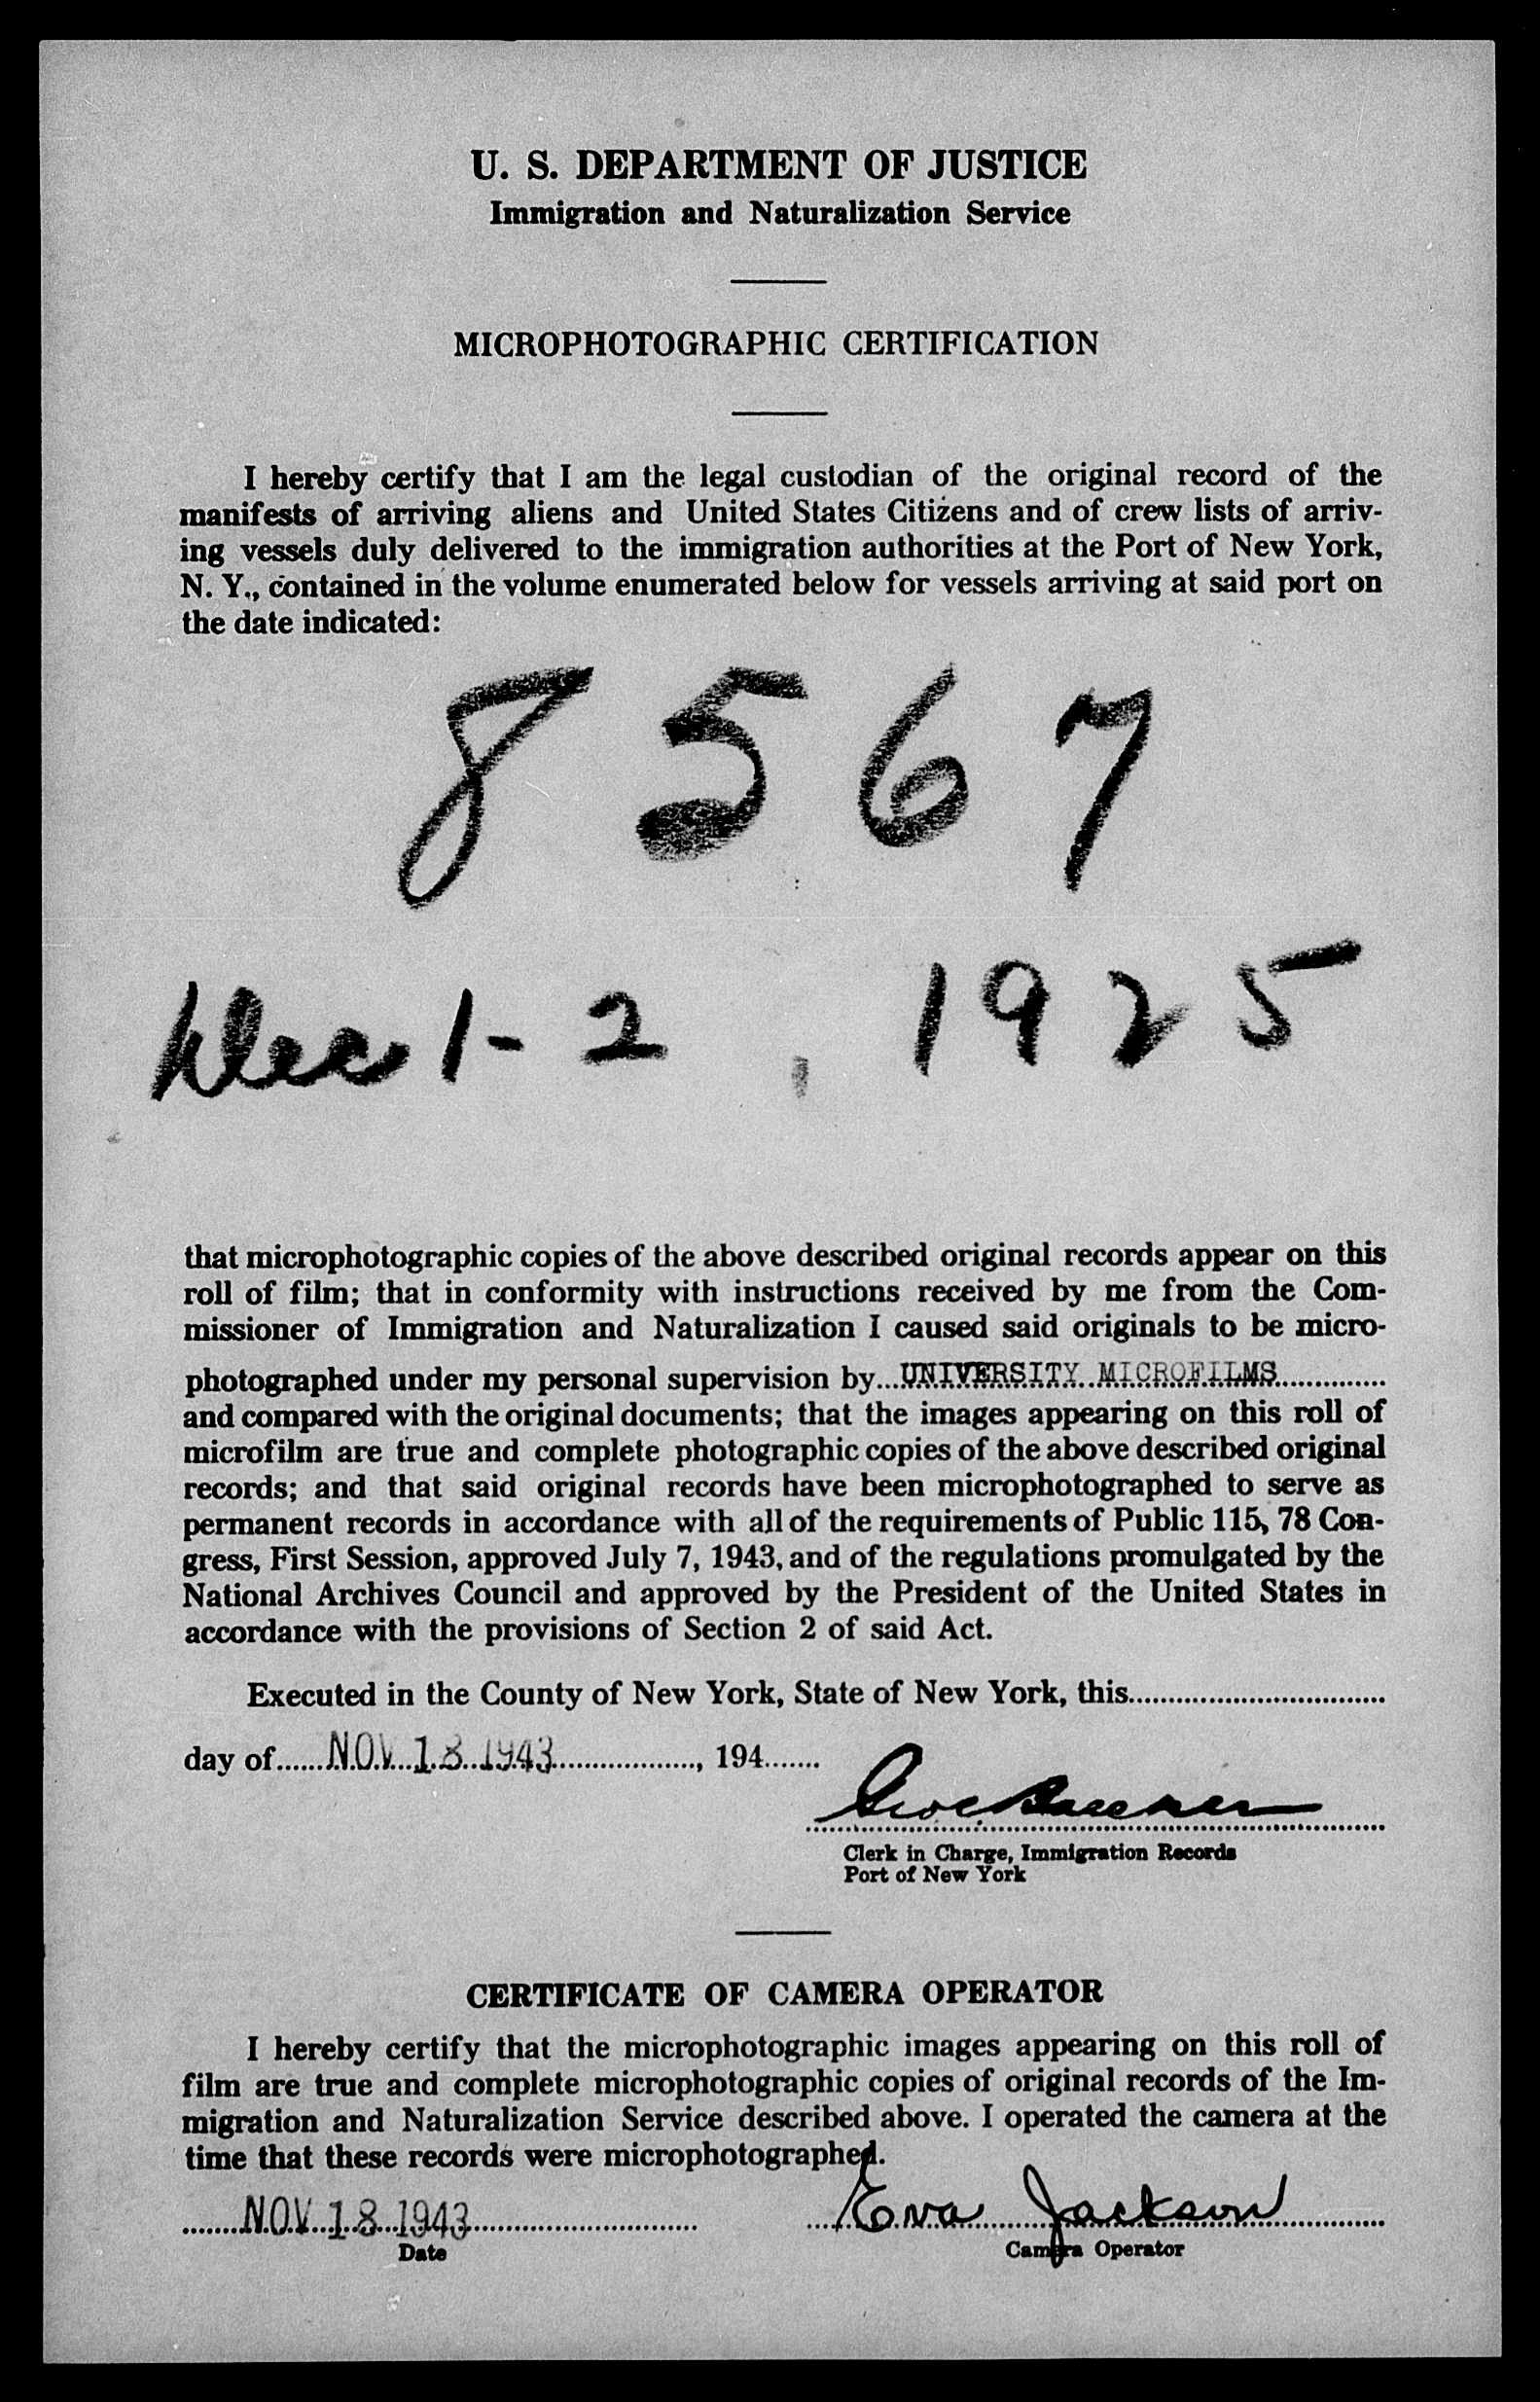 U. S. DEPARTMENT OF JUSTICE
Immigration and Naturalization Service
MICROPHOTOGRAPHIC CERTIFICATION
I hereby certify that I am the legal custodian of the original record of the
manifests of arriving aliens and United States Citizens and of crew lists of arriv-
ing vessels duly delivered to the immigration authorities at the Port of New York,
N. Y., contained in the volume enumerated below for vessels arriving at said port on
the date indicated:
8567
Dec 1-2, 1925
that microphotographic copies of the above described original records appear on this
roll of film; that in conformity with instructions received by me from the Com-
missioner of Immigration and Naturalization I caused said originals to be micro-
photographed under my personal supervision by UNIVERSITY MICROFILMS
and compared with the original documents; that the images appearing on this roll of
microfilm are true and complete photographic copies of the above described original
records; and that said original records have been microphotographed to serve as
permanent records in accordance with all of the requirements of Public 115, 78 Con-
gress, First Session, approved July 7, 1943, and of the regulations promulgated by the
National Archives Council and approved by the President of the United States in
accordance with the provisions of Section 2 of said Act.
Executed in the County of New York, State of New York, this
day of NOV 18 1943, 194
Clerk in Charge, Immigration Records
Port of New York
CERTIFICATE OF CAMERA OPERATOR
I hereby certify that the microphotographic images appearing on this roll of
film are true and complete microphotographic copies of original records of the Im-
migration and Naturalization Service described above. I operated the camera at the
time that these records were microphotographed.
NOV 18 1943 Eva Jackson
Date Camera Operator